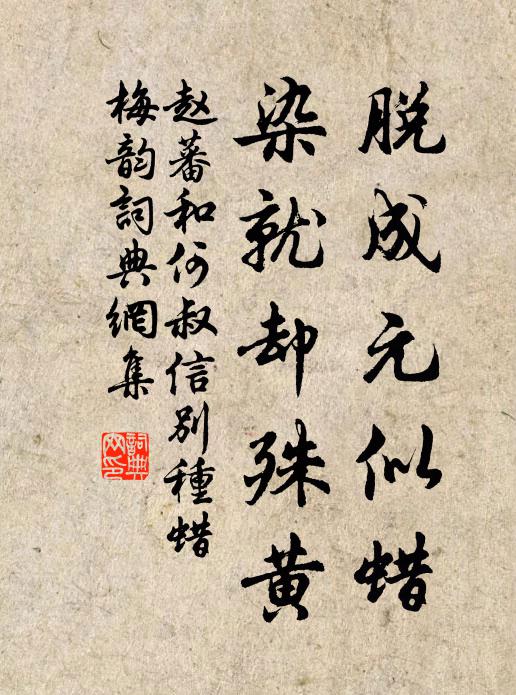 脱成元似蜡
染就却殊黄
赵蕃和何叔信别種蜡
梅韵詞典網集
詞典网印